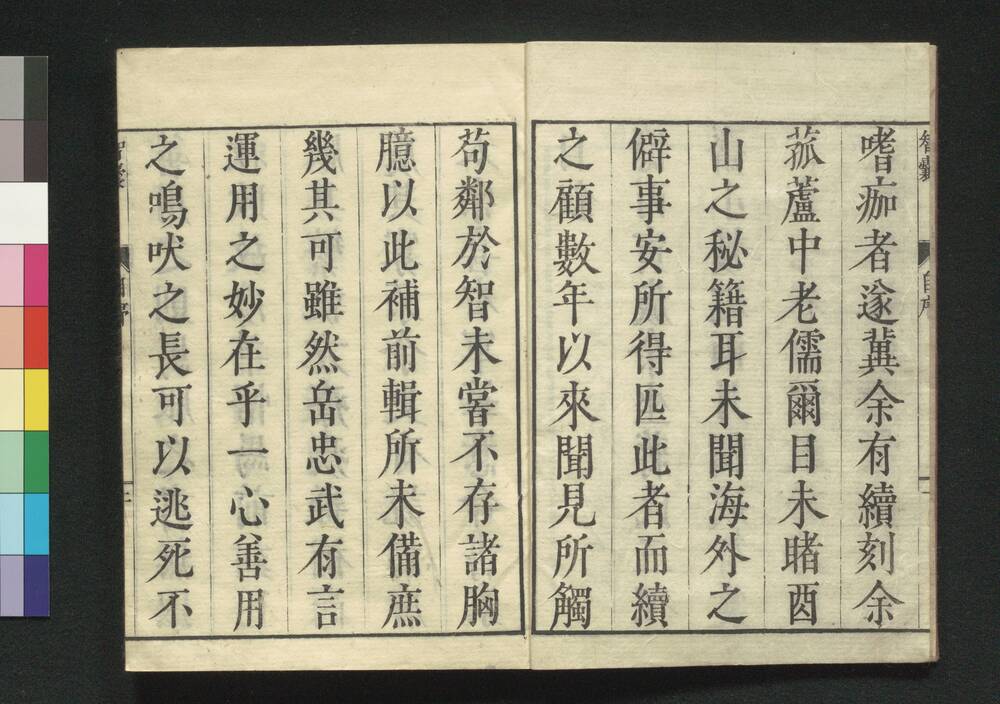 嗜痂者遂冀余有續刻余
菰蘆中老儒爾目未睹酉
山之秘籍耳未聞海外之
僻事安所得匹此者而續
之顧數年以來聞見所觸
苟鄰於智未嘗不存諸胸
臆以此補前輯所未備庶
幾其可雖然岳忠武有言
運用之妙在乎一心善用
之鳴吠之長可以逃死不